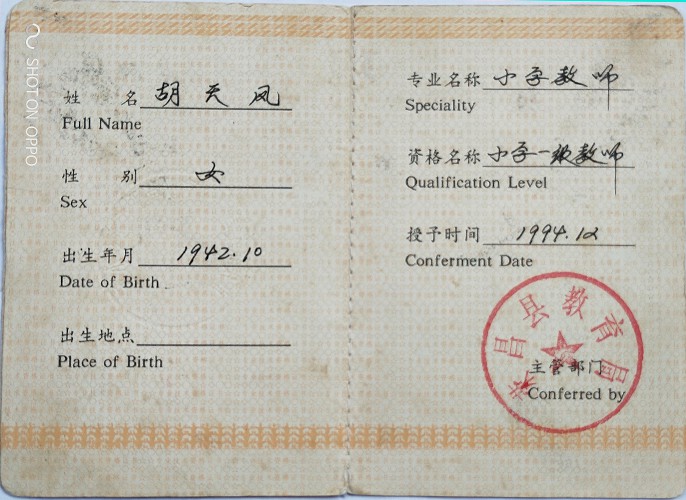 SHOT ON OPPO
姓 名 胡天凤
Full Name
性 别 女
Sex
出生年月 1942.10
Date of Birth
出生地点
Place of Birth
专业名称 小学教师
Speciality
资格名称 小学一级教师
Qualification Level
授予时间 1994.12
Conferment Date
昌县教育局
主管部门
Conferred by